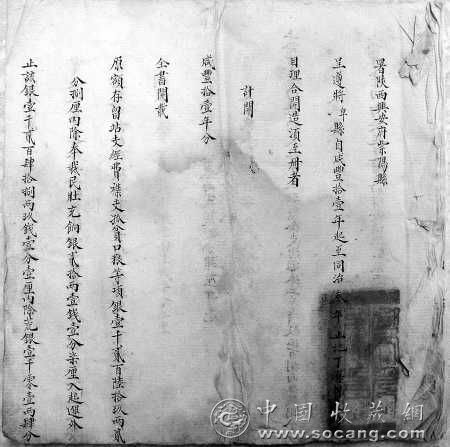 署陝西興安府紫陽縣
呈遵將卑縣自咸豐拾壹年起至同治叁年止
目理合開造須至冊者
計開
咸豐拾壹年分
全書開載
原額存留站支經費襍支孤貧口粮等項銀壹千貳百陸拾玖兩貳
分捌厘內除奉裁民壯充餉銀貳拾兩壹錢壹分柒厘入起運外
止該銀壹千貳百肆拾捌兩玖錢壹分壹厘內除荒銀壹千零壹兩肆分
中国收藏網
www.socang.com